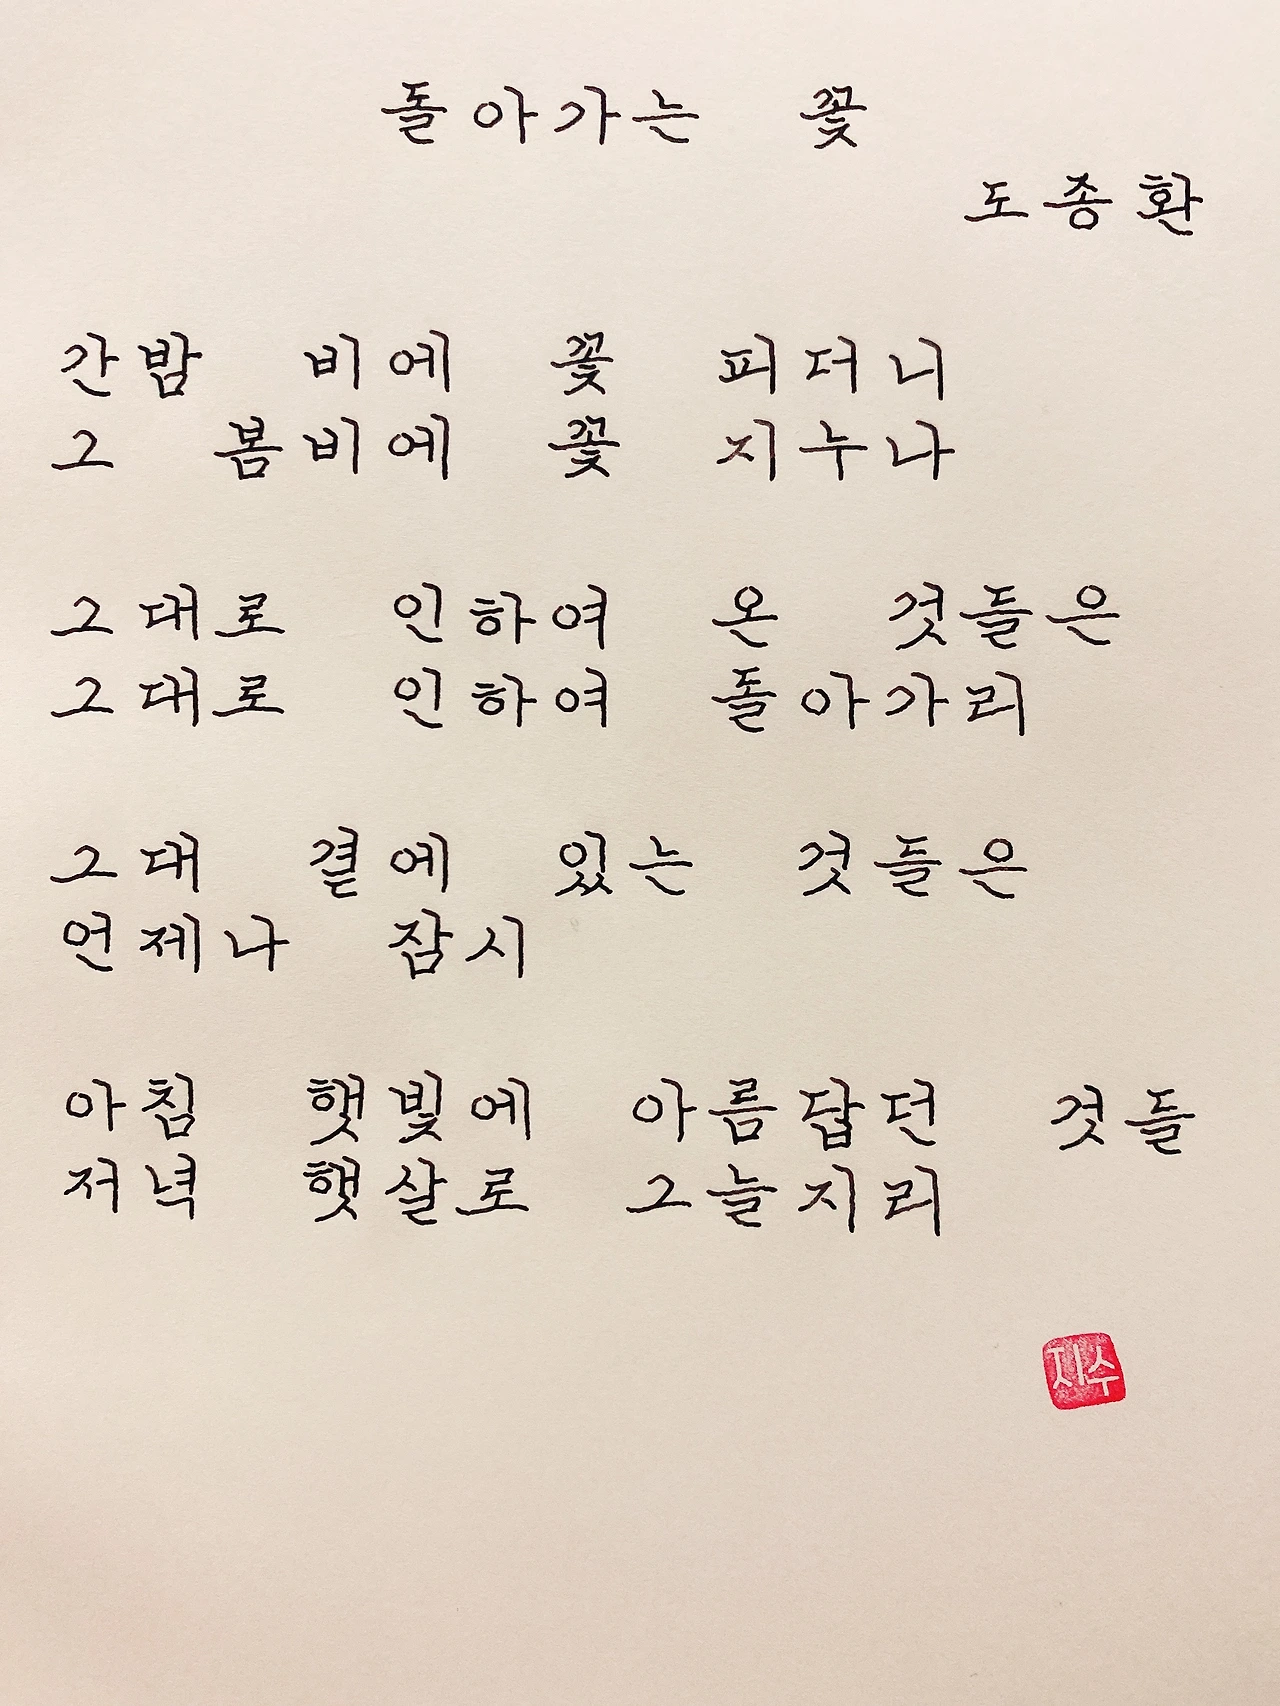 돌아가는 꽃
도종환
간밤 비에 꽃 피더니
그 봄비에 꽃 지누나
그대로 인하여 온 것들은
그대로 인하여 돌아가리
그대 곁에 있는 것들은
언제나 잠시
아침 햇빛에 아름답던 것들
저녁 햇살로 그늘지리
지수